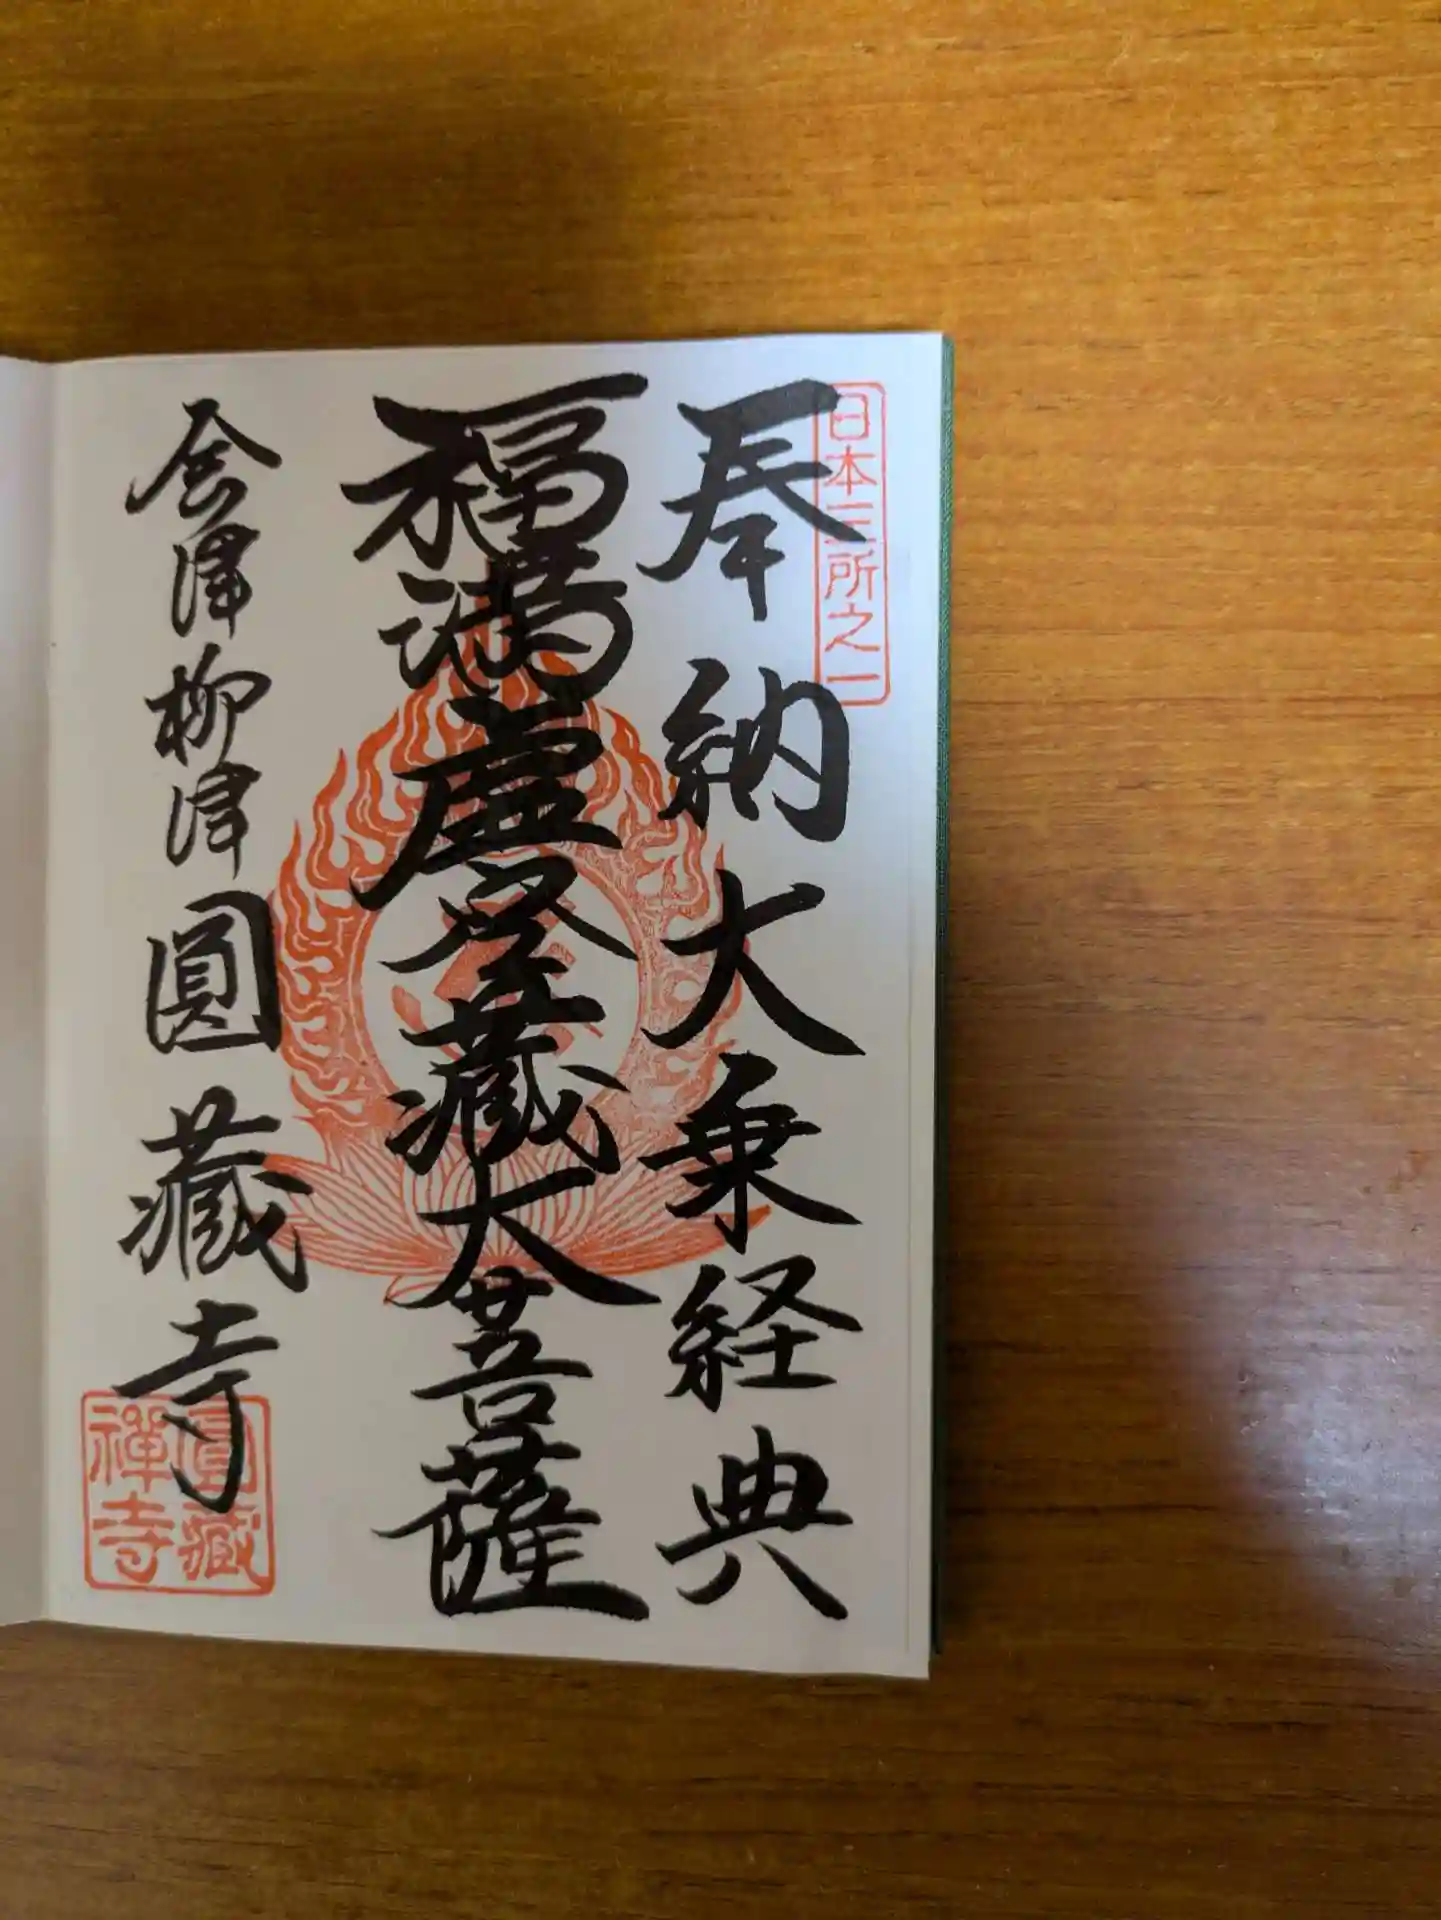 日本三所之一
奉納大乗経典
福満虚空藏大菩薩
会津柳津圓藏寺
圓藏
禅寺